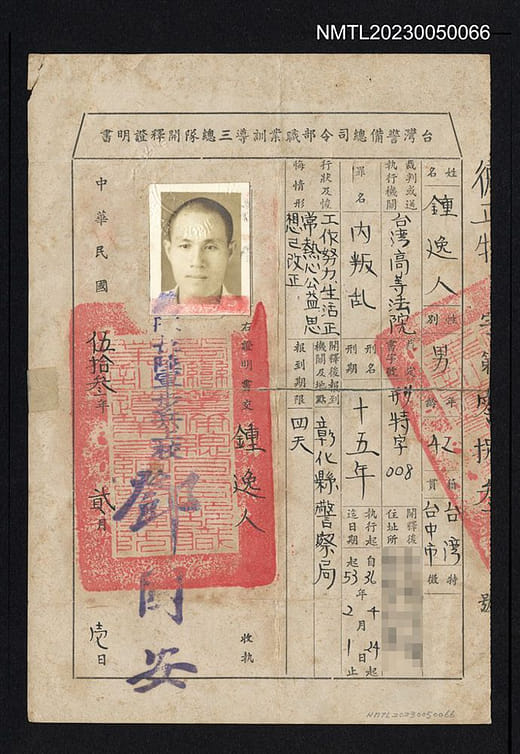 NMTL20230050066
台灣警備總司令部職業訓導三總隊開釋證明書
姓名 鍾逸人 性別 男 年齡 42 籍貫 台灣台中市 特徵
裁判或送執行機關 台湾高等法院 字號 特字008 開釋後住址所
罪名 內叛乱 刑名刑期 十五年 執行起迄日期 自36年4月24日起 53年2月1日止
行狀及悛悔情形 工作努力生活正常熱心公益思想已改正 開釋後報到機關及地點 彰化縣警察局
報到期限 四天
右證明書交 鍾逸人 收執
鄧同安
中華民國 伍拾叁年 貳月 壱日
NMTL20230050066